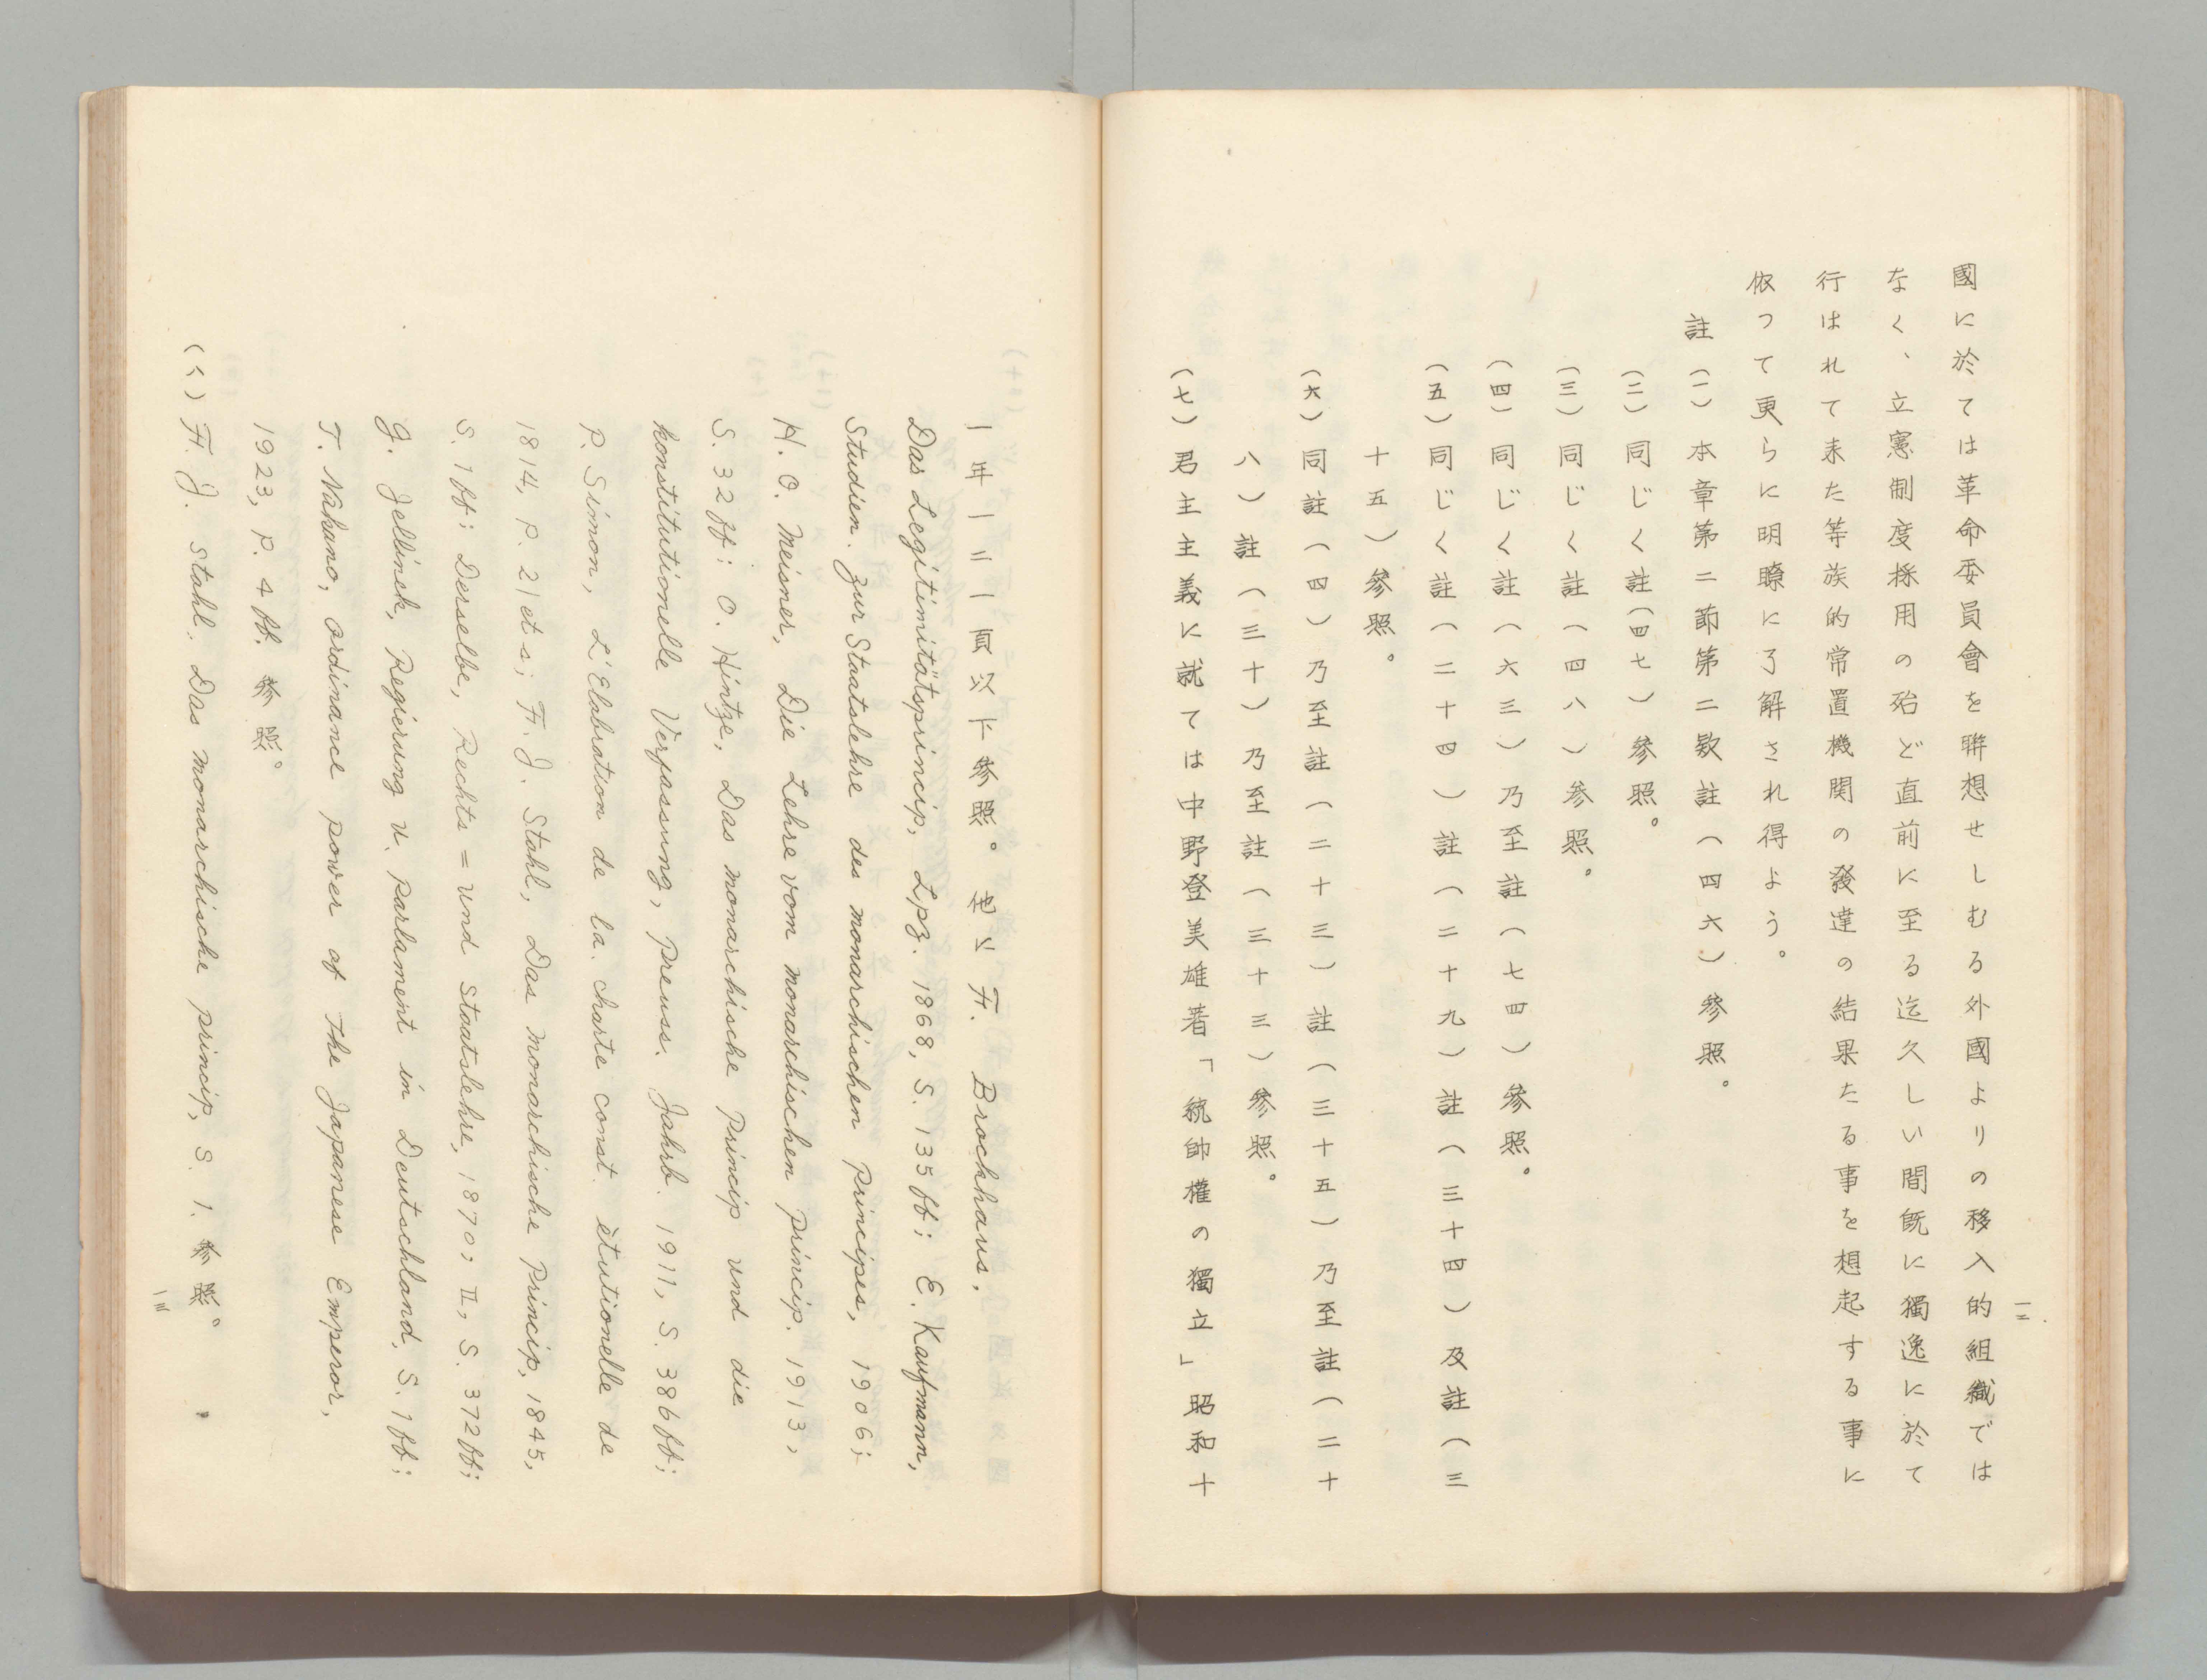 國に於ては革命委員會を聯想せしむる外國よりの移入的組織では
なく、立憲制度採用の殆ど直前に至る迄久しい間既に獨逸に於て
行はれて来た等族的常置機関の發達の結果たる事を想起する事に
依つて更らに明瞭に了解され得よう。
註(一)本章第二節第二款註(四六)參照。
(二)同じく註(四七)參照。
(三)同じく註(四八)参照。
(四)同じく註(六三)乃至註(七四)參照。
(五)同じく註(二十四)註(二十九)註(三十四)及註(三
十五)參照。
(六)同註(四)乃至註(二十三)註(三十五)乃至註(二十
八)註(三十)乃至註(三十三)參照。
(七)君主主義に就ては中野登美雄著「統帥權の獨立」昭和十
一二
一年一二一頁以下參照。他に F. Brockhaus,
Das Legitimitätsprincip, Lpz. 1868, S. 135ff; E. Kaufmann,
Studien zur Staatslehre des monarchischen Principes, 1906;
H. O. Meisner, Die Lehre vom monarchischen Princip. 1913,
S. 32ff; O. Hintze, Das monarchische Princip und die
konstitutionelle Verfassung, Preuss. Jahrb. 1911, S. 386ff;
P. Simon, L'Elabration de la charte const. ètutionelle de
1814, P. 21 et s; F. J. Stahl, Das monarchische Princip, 1845,
S. 1ff; Derselbe, Rechts = und Staatslehre, 1870; II, S. 372ff;
G. Jellinek, Regierung u. Parlament in Deutschland, S. 1ff;
T. Nakano, Ordinance power of the Japanese Emperor,
1923, P. 4ff. 參照。
(八) F. J. Stahl. Das monarchische princip, S. 1. 參照。
一三